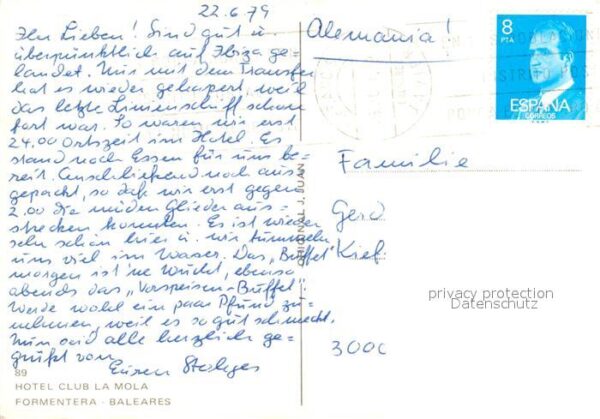 22.6.79
Ihr Lieben! Sind gut u.
überpünktlich auf Ibiza ge-
landet. Nur mit dem Transfer
hat es wieder gehapert, weil
das letzte Linienschiff schon
fort war. So waren wir erst
24.00 Ortszeit im Hotel. Es
stand noch Essen für uns be-
reit. Anschließend noch aus-
gepackt, so daß wir erst gegen
2.00 die müden Glieder aus-
strecken konnten. Es ist wieder
sehr schön hier u. wir tummeln
uns viel im Wasser. Das "Büffet"
morgens ist 'ne Wucht, ebenso
abends das "Vorspeisen-Büffet".
Werde wohl ein paar Pfund zu-
nehmen, weil es so gut schmeckt.
Nun seid alle herzlich ge-
grüßt von
Euren
89
HOTEL CLUB LA MOLA
FORMENTERA - BALEARES
ORIGINAL J. JUAN
Alemania!
8
PTA
ESPAÑA
CORREOS
Familie
Gerd
Kief
privacy protection
Datenschutz
3000